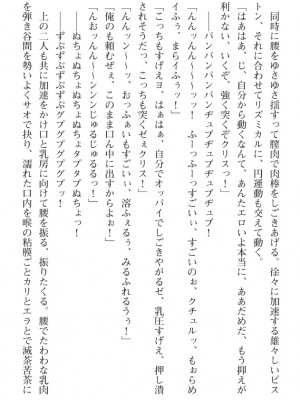 同時に腰をゆさゆさ揺すって膣肉で肉棒をしごきあげる。徐々に加速する雄々しいピス
トン、それに合わせてリズミカルに、円運動も交えて動く。
「はぁはぁ、じ、自分から動くなんて、あんたエロいよ本当に、ああだめだ、もう抑えが
利かない、いくぞ、強く突くぞクリスっ！」
――パンパンパンパンヂュプヂュプヂュプ！
「んんッんん～～ンッ！　ふーっふーっすごいぃ、すごいのぉ、クチュルッ、もぉらめ
イふぅ、まらイふぅぅ！」
「こっちもすげえョ、はぁはぁ、自分でオッパイでしごきやがるぜ、乳圧すげえ、押し潰
されそうだっ、こっちも突くぜぇクリス！」
「んんッンン～ッ、おっふぁいもすごいぃ、溶ふぇるぅ、みるふれるうぅ！」
「俺のも頼むぜぇ、このまま口ん中に出すからよぉ！」
「んおッんん～～ンンンじゅるじゅるるっ！」
ぬちょぬちょぬちょぬちょタプタプぬちょっ！
ずぷずぷずぷずぷグプグプグプッ！
上の二人も共に加速をかけ口と乳房に向けて腰を振る、振りたくる。腰でたわわな乳肉
を弾き谷間を勢いよくサオで抉り、濡れた口内を喉の粘膜ごとカリとエラとで滅茶苦茶に